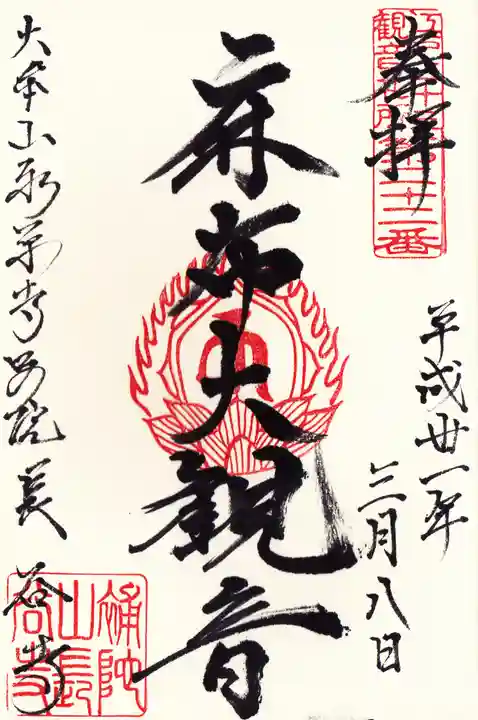 奉拝
江戸三十三観音札所第二十二番
平成廿一年
三月八日
麻布大観音
大本山永平寺別院長谷寺
補陀山長谷寺